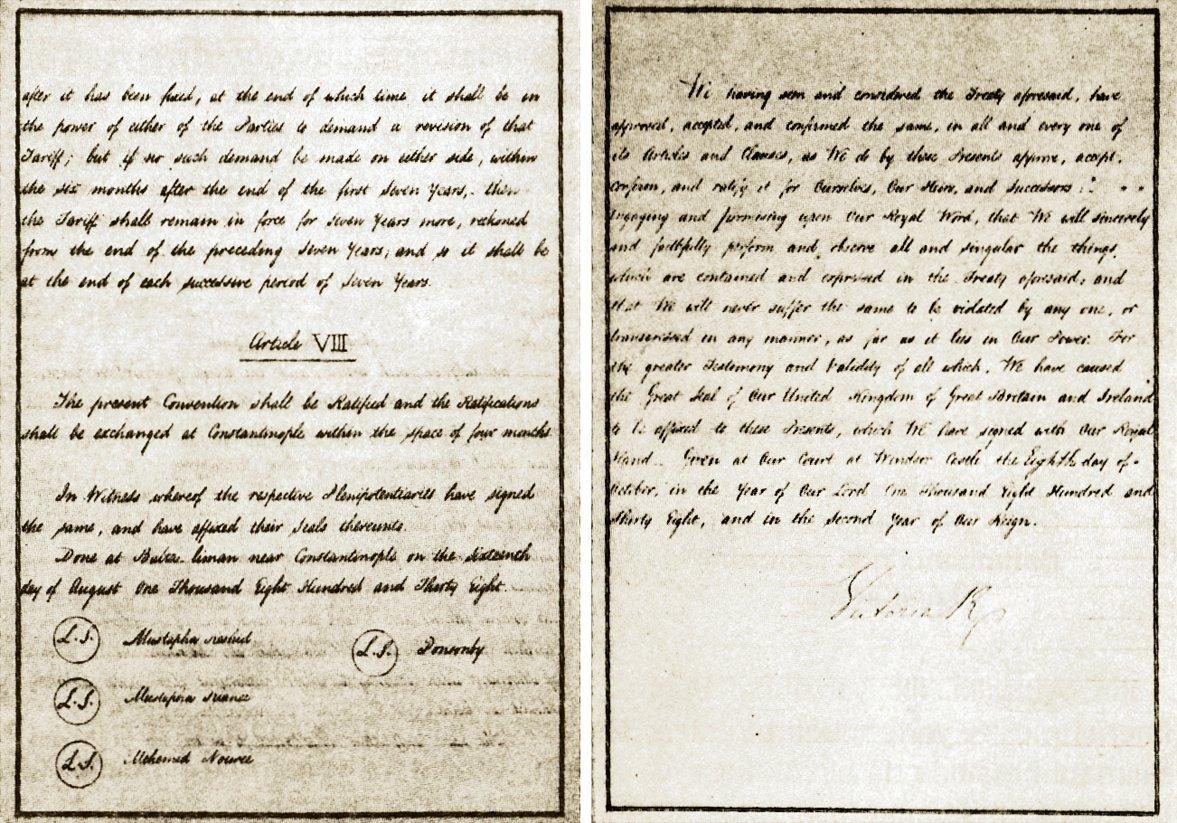 after it has been fixed, at the end of which time it shall be in
the power of either of the Parties to demand a revision of that
Tariff; but if no such demand be made on either side, within
the six months after the end of the first Seven Years, then
the Tariff shall remain in force for Seven Years more, reckoned
from the end of the preceding Seven Years; and so it shall be
at the end of each successive period of Seven Years.
Article VIII
The present Convention shall be Ratified and the Ratifications
shall be exchanged at Constantinople within the space of four months
In Witness whereof the respective Plenipotentiaries have signed
the same, and have affixed their Seals thereunto.
Done at Balta liman near Constantinople on the sixteenth
day of August One Thousand Eight Hundred and Thirty Eight
L.S. Mustapha Reshid
L.S. Ponsonby
L.S. Mustapha
L.S. Mehemed Nouree
We having seen and considered the Treaty aforesaid, have
approved, accepted, and confirmed the same, in all and every one of
its Articles and Clauses, as We do by these Presents approve, accept,
confirm, and ratify it for Ourselves, Our Heirs, and Successors:
Engaging and promising upon Our Royal Word, that We will sincerely
and faithfully perform and observe all and singular the things
which are contained and expressed in the Treaty aforesaid, and
that We will never suffer the same to be violated by any one, or
transgressed in any manner, as far as it lies in Our Power. For
the greater Testimony and Validity of all which, We have caused
the Great Seal of Our United Kingdom of Great Britain and Ireland
to be affixed to these Presents, which We have signed with Our Royal
Hand. Given at Our Court at Windsor Castle the Eighth day of
October, in the Year of Our Lord One Thousand Eight Hundred and
Thirty Eight, and in the Second Year of Our Reign.
Victoria R